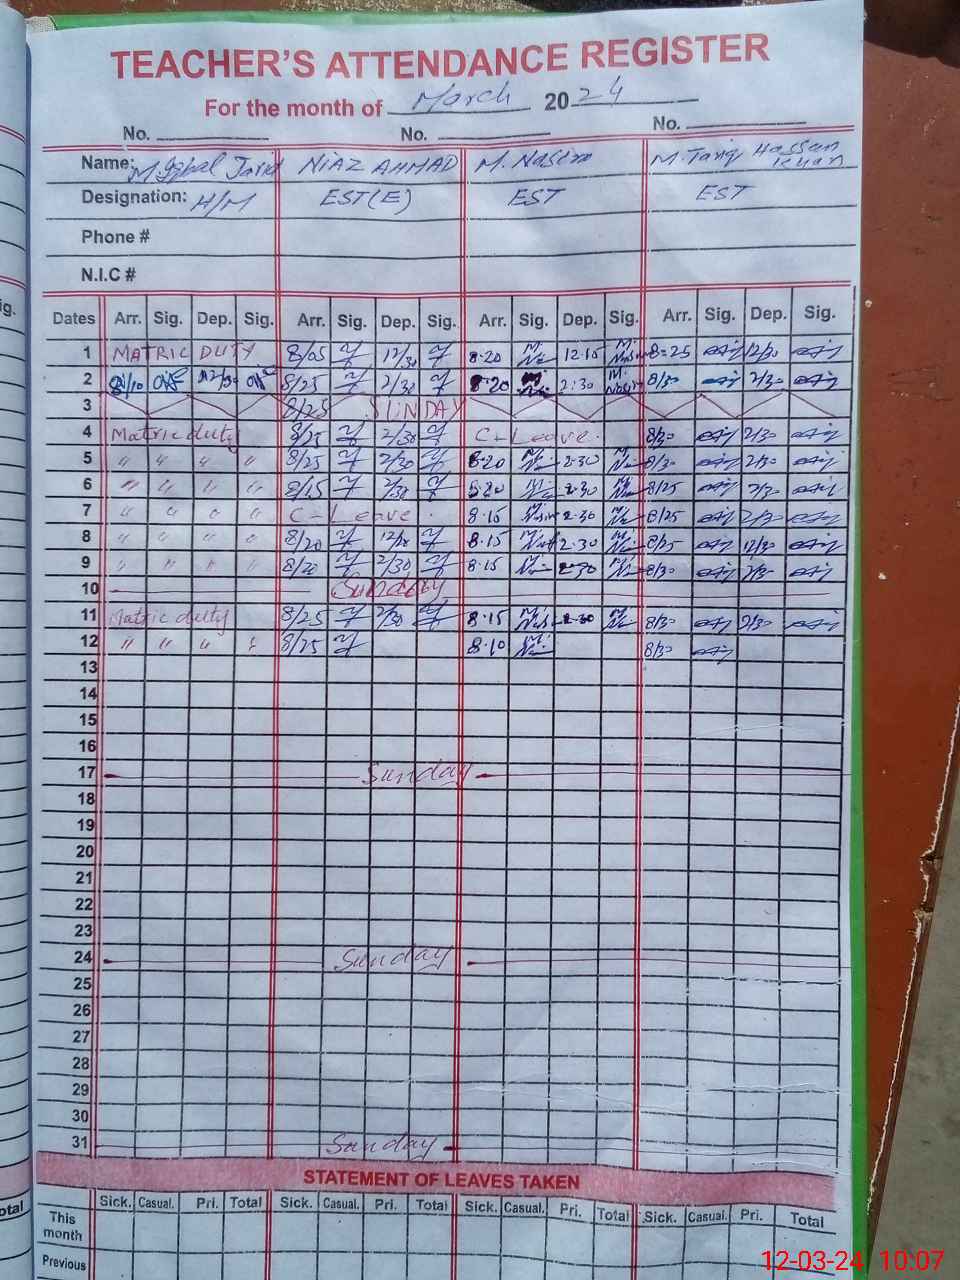 TEACHER'S ATTENDANCE REGISTER
For the month of March 2024
No. No. No.
Name: M. Iqbal NIAZ AHMAD M. Nasir M. Tariq Hassan Khan
Designation: H/M EST(E) EST EST
Phone #
N.I.C #
ig.
Dates Arr. Sig. Dep. Sig. Arr. Sig. Dep. Sig. Arr. Sig. Dep. Sig. Arr. Sig. Dep. Sig.
1 MATRIC DUTY 8/05 12/30 8.20 12.15 8=25 12/30
2 8/10 8/25 2/30 8.20 2:30 8/30 2/30
3 8/25 SUNDAY
4 Matric duty 8/25 2/30 C-Leave. 8/30 2/30
5 " " " " 8/25 2/30 8.20 2.30 8/30 2/30
6 " " " " 2/30 8.20 2.30 8/25 2/30
7 " " " " C-Leave. 8.15 2.30 8/25 2/30
8 " " " " 8/20 8.15 2.30 8/25 12/30
9 " " " " 8/20 2/30 8.15 2.30 8/30 2/30
10 Sunday
11 Matric duty 8/25 2/30 8.15 2.30 8/30 2/30
12 " " " " 8/25 8.10 8/30
13
14
15
16
17 Sunday
18
19
20
21
22
23
24 Sunday
25
26
27
28
29
30
31 Sunday
STATEMENT OF LEAVES TAKEN
Sick. Casual. Pri. Total Sick. Casual. Pri. Total Sick. Casual. Pri. Total Sick. Casual. Pri. Total
otal
This
month
Previous
12-03-24 10:07